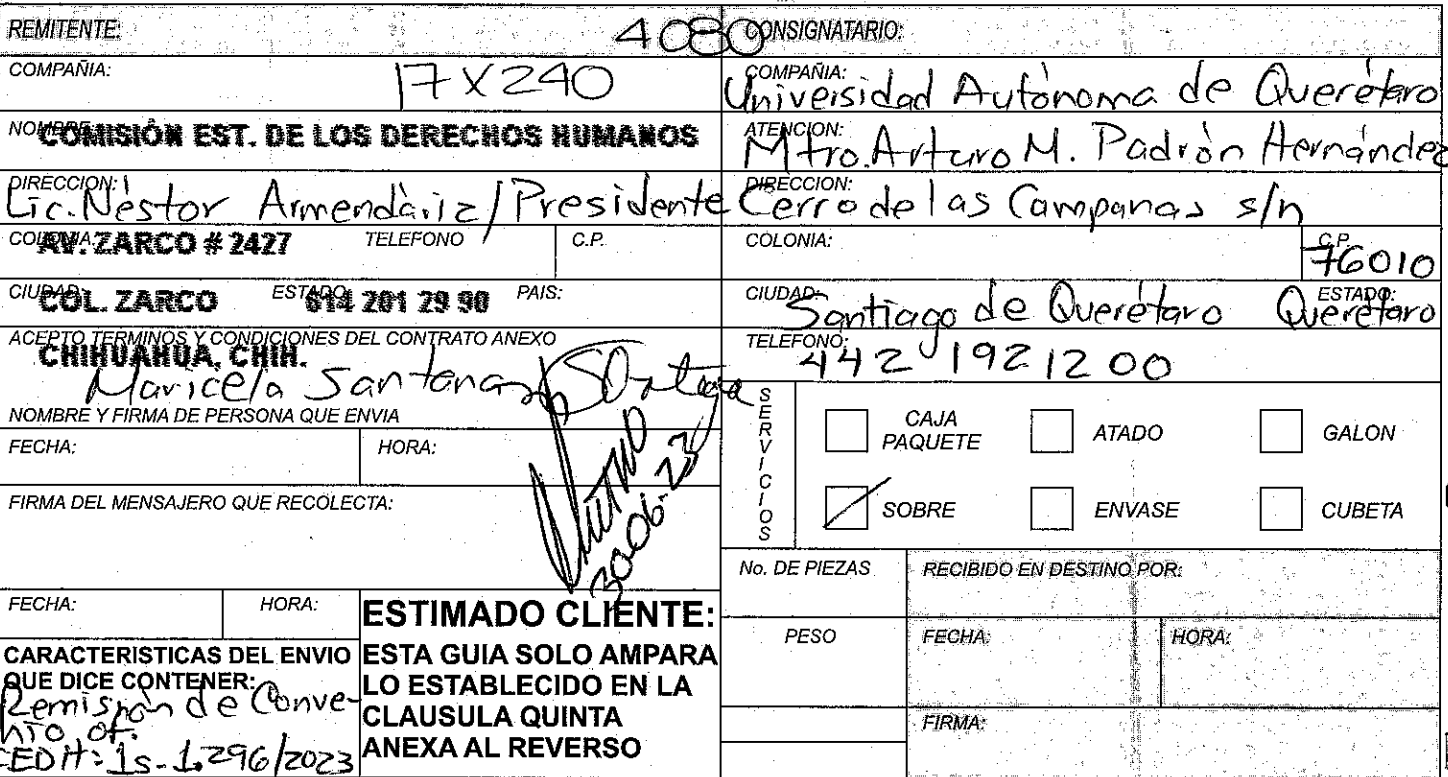 REMITENTE:
4080
COMPAÑIA:
17X240
NOMBRE
COMISIÓN EST. DE LOS DERECHOS HUMANOS
DIRECCION:
Lic. Néstor Armendáriz / Presidente
COLONIA:
AV. ZARCO # 2427
TELEFONO
C.P.
CIUDAD:
COL. ZARCO
ESTADO
614 201 29 90
PAIS:
ACEPTO TERMINOS Y CONDICIONES DEL CONTRATO ANEXO
CHIHUAHUA, CHIH.
Maricela Santana
NOMBRE Y FIRMA DE PERSONA QUE ENVIA
FECHA:
HORA:
30-06-23
FIRMA DEL MENSAJERO QUE RECOLECTA:
FECHA:
HORA:
CARACTERISTICAS DEL ENVIO
QUE DICE CONTENER:
Remisión de Conve-
nio of.
CEDH: 1s.1.296/2023
ESTIMADO CLIENTE:
ESTA GUIA SOLO AMPARA
LO ESTABLECIDO EN LA
CLAUSULA QUINTA
ANEXA AL REVERSO
CONSIGNATARIO:
COMPAÑIA:
Universidad Autónoma de Querétaro
ATENCION:
Mtro. Arturo M. Padrón Hernández
DIRECCION:
Cerro de las Campanas s/n
COLONIA:
C.P.
76010
CIUDAD:
Santiago de Querétaro
ESTADO:
Querétaro
TELEFONO:
442 192 12 00
SERVICIOS
CAJA PAQUETE
ATADO
GALON
SOBRE
ENVASE
CUBETA
No. DE PIEZAS
RECIBIDO EN DESTINO POR:
PESO
FECHA:
HORA:
FIRMA: